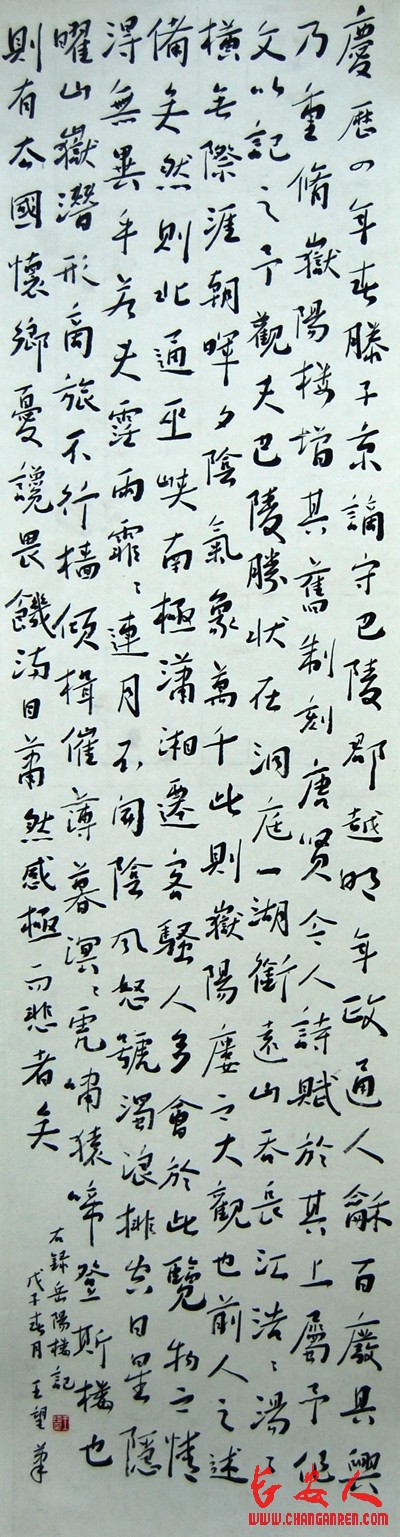 慶歷四年春滕子京謫守巴陵郡越明年政通人龢百廢具興
乃重脩嶽陽樓增其舊制刻唐賢今人詩賦於其上屬予作
文以記之予觀夫巴陵勝狀在洞庭一湖銜遠山吞長江浩〻湯〻
橫無際涯朝暉夕陰氣象萬千此則嶽陽廔之大觀也前人之述
備矣然則北通巫峽南極瀟湘遷客騷人多會於此覽物之情
得無異乎若夫霪雨霏〻連月不開陰風怒號濁浪排空日星隱
曜山嶽潛形商旅不行檣傾楫催薄暮溟〻虎嘯猿啼登斯樓也
則有去國懷鄉憂讒畏饑滿目蕭然感極而悲者矣
右錄岳陽樓記
戊子春月 王望筆
长安人
WWW.CHANGANREN.COM